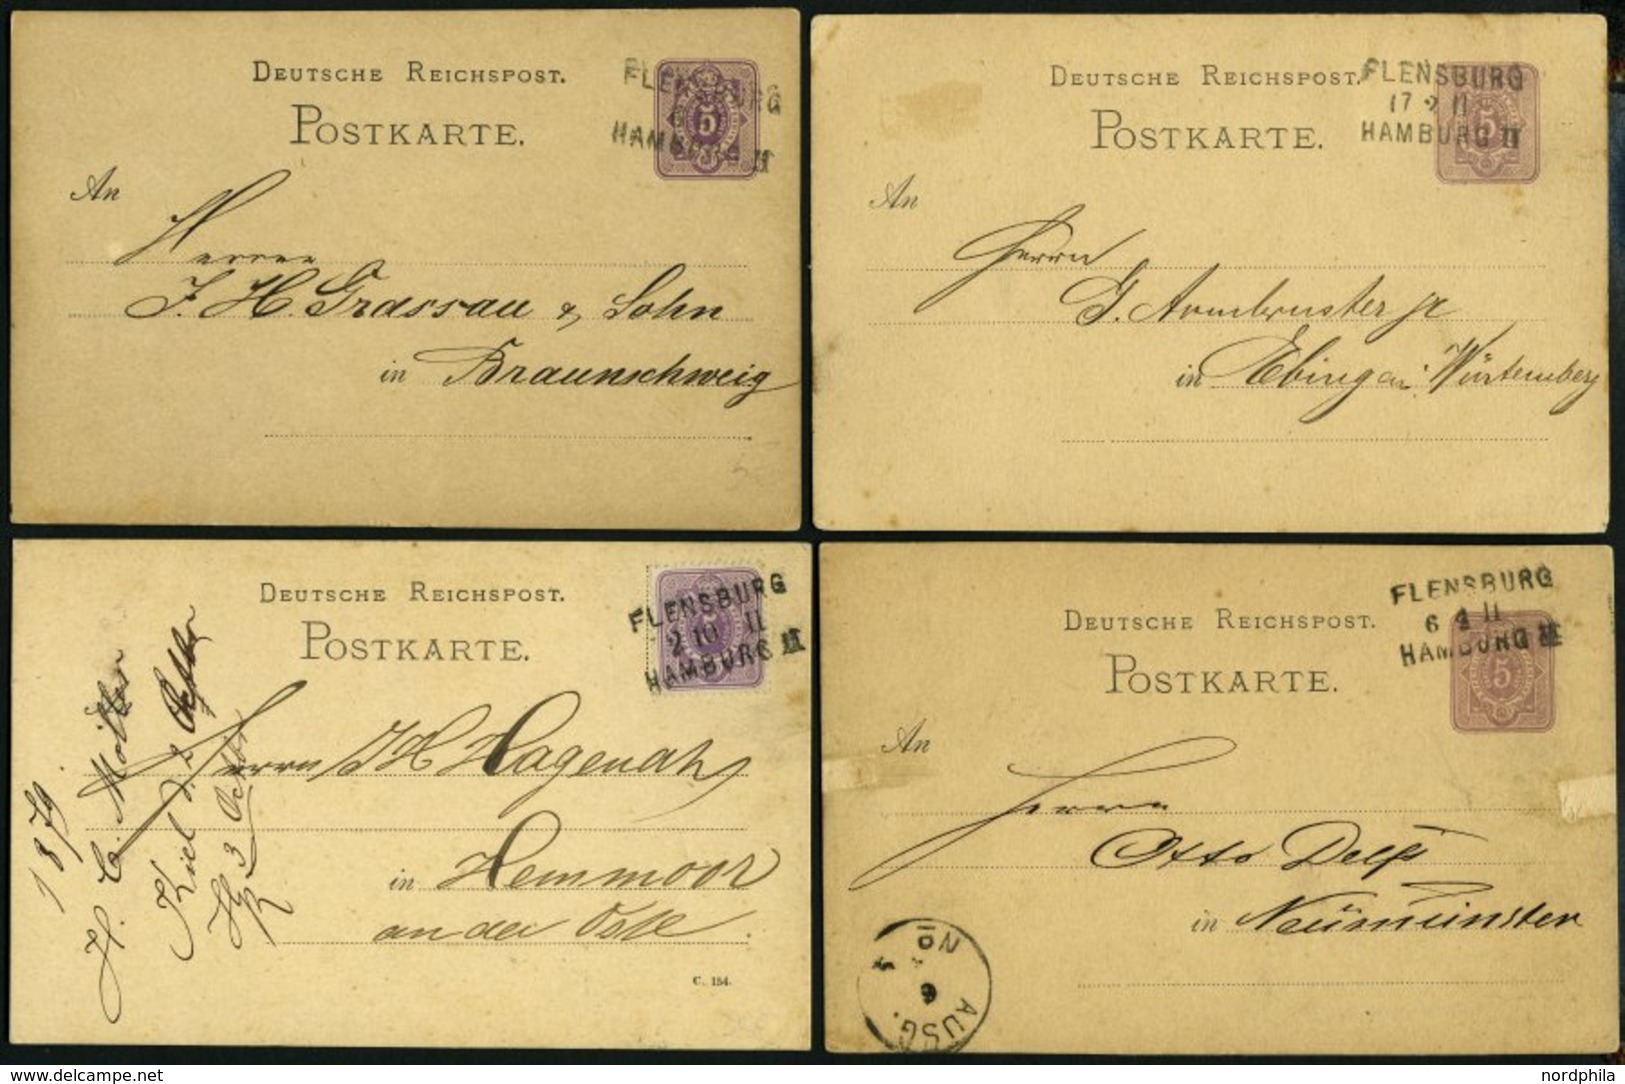 DEUTSCHE REICHSPOST.
POSTKARTE.
FLENSBURG
HAMBURG II
5
An
Herren
J. H. Grassau & Sohn
in Braunschweig
DEUTSCHE REICHSPOST.
POSTKARTE.
FLENSBURG
17 2 II
HAMBURG II
5
An
Herrn
G. Armbruster jr
in Ebingen Würtemberg
DEUTSCHE REICHSPOST.
POSTKARTE.
FLENSBURG
2 10 II
HAMBURG II
5
1879.
H. C. Möller
Kiel d. 2 Octbr
3 Octbr
Herrn J H Hagenah
in Hemmoor
an der Oste.
C. 154.
DEUTSCHE REICHSPOST.
POSTKARTE.
FLENSBURG
6 4 II
HAMBURG III
5
An
Herrn
Otto Delfs
in Neumünster
AUSG.
6
www.delcampe.net
nordphila